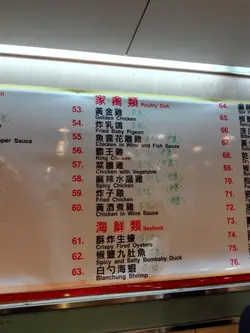 家禽類 Poultry Dish
53. 黃金雞
Golden Chicken
54. 炸乳鴿
Fried Baby Pigeon
55. 魚露花雕雞
Chicken in Wine and Fish Sauce
56. 霸王雞
King Chicken
57. 菜膽雞
Chicken with Vegetable
58. 麻辣水晶雞
Spicy Chicken
59. 炸子雞
Fried Chicken
60. 黃酒煮雞
Chicken in Wine
海鮮類 Seafood
61. 酥炸生蠔
Crispy Fired Oysters
62. 椒鹽九肚魚
Spicy and Salty Bombaby Duck
63. 白勺海蝦
Blanchung Shrimp
per Sauce
64.
65.
66.
67.
68.
69.
70.
71.
72.
73.
74.
75.
76.